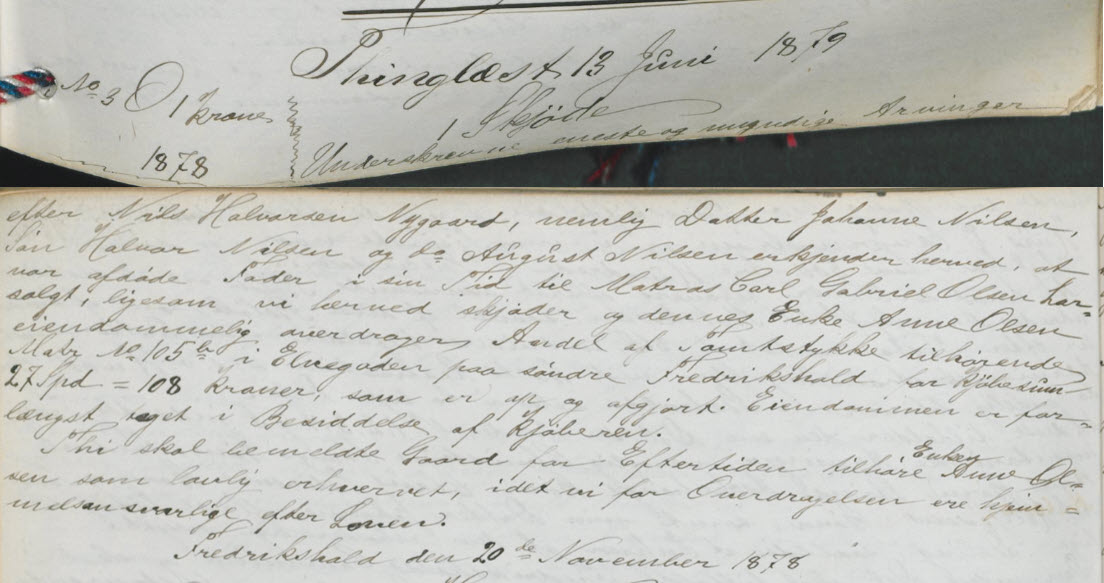 Thinglæst 13 Juni 1879
No 3 1 krone 1878
Skjøde
Underskrevne eneste og myndige Arvinger
efter Nils Halvorsen Nygaard, nemlig Datter Johanne Nilsen,
Søn Halvor Nilsen og do August Nilsen erkjender herved, at
vor afdøde Fader i sin Tid til Matros Carl Gabriel Olsen har
solgt, ligesom vi herved skjøder og dennes Enke Anne Olsen
eiendommelig overdrager Andel af Tomtstykke tilhørende
Matr No 105 b i Elvegaden paa søndre Fredrikshald for Kjøbesum
27 Spd = 108 kroner, som er op og afgjort. Eiendommen er for-
længst taget i Besiddelse af Kjøberen.
Thi skal bemeldte Gaard for Eftertiden tilhøre Enken Anne Ol-
sen som lovlig erhvervet, idet vi for Overdragelsen ere hjem-
melsansvarlige efter Loven.
Fredrikshald den 20de November 1878